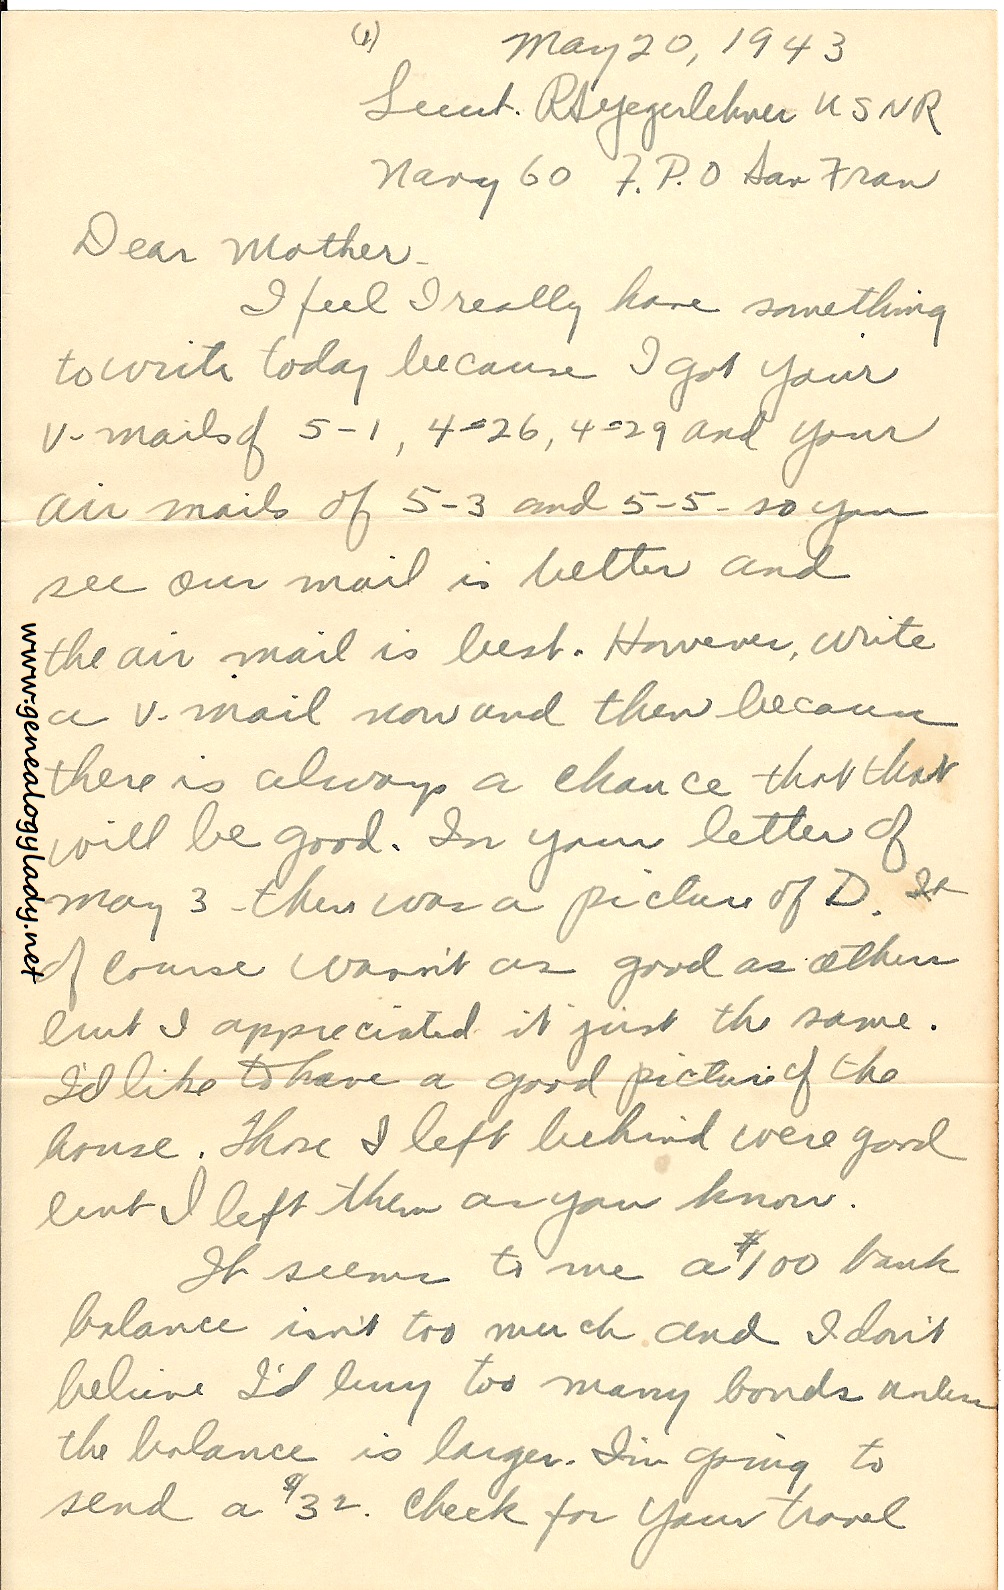 (1) May 20, 1943
Lieut. RSYegerlehner USNR
Navy 60 F.P.O San Fran
Dear Mother-
I feel I really have something
to write today because I got your
V-mails of 5-1, 4-26, 4-29 and your
air mails of 5-3 and 5-5- so you
see our mail is better and
the air mail is best. However, write
a V-mail now and then because
there is always a chance that that
will be good. In your letter of
May 3 - there was a picture of D. It
of course wasn't as good as others
but I appreciated it just the same.
I'd like to have a good picture of the
house. Those I left behind were good
but I left them as you know.
It seems to me a $100 bank
balance isn't too much and I don't
believe I'd buy too many bonds unless
the balance is larger. I'm going to
send a $32. check for your travel
www.genealogylady.net